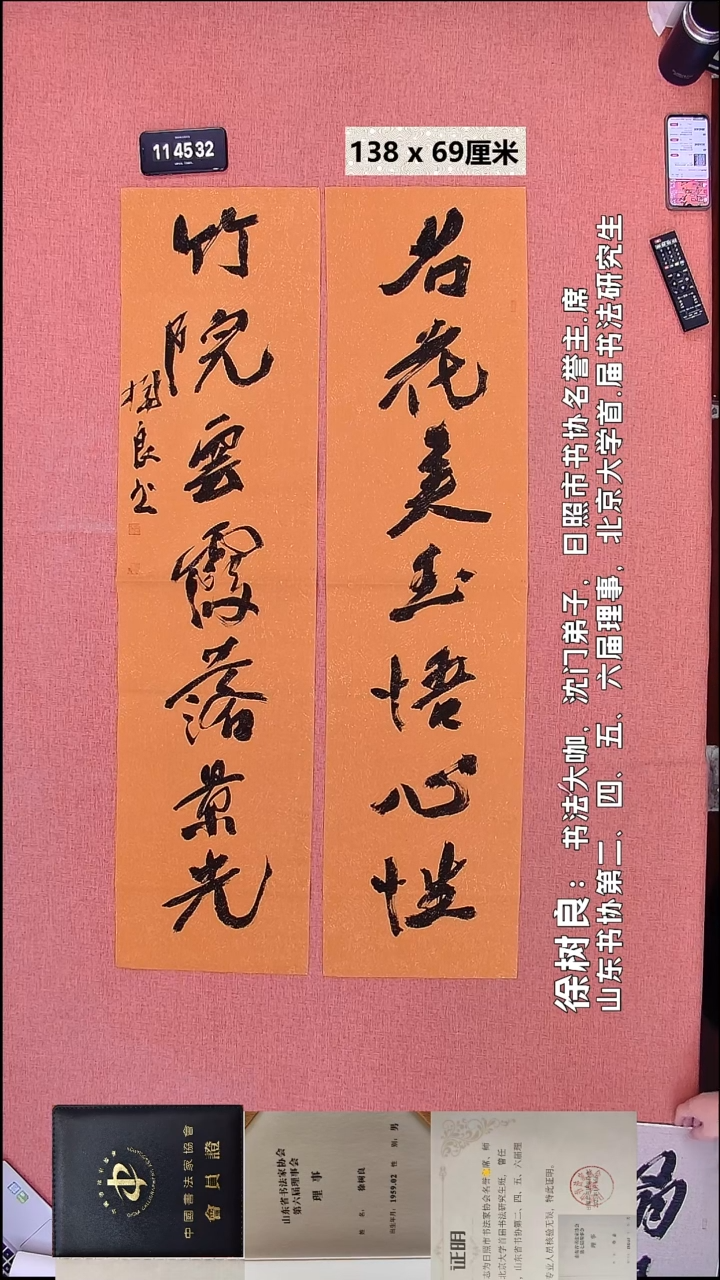 11 45 32
138 x 69厘米
名花美玉悟心性
竹院雲霞落景光
樹良书
徐树良：书法大咖，沈门弟子，日照市书协名誉主.席
山东书协第二、四、五、六届理事，北京大学首.届书法研究生
中國書法家協會
會員證
山东省书法家协会
第六届理事会
理 事
姓 名：徐树良
出生年月：1959.02 性 别：男
证明
志为日照市书法家协会名誉席，师
北京大学首届书法研究生班，曾任
山东省书协第二、四、五、六届理
专业人员核验无误，特此证明。